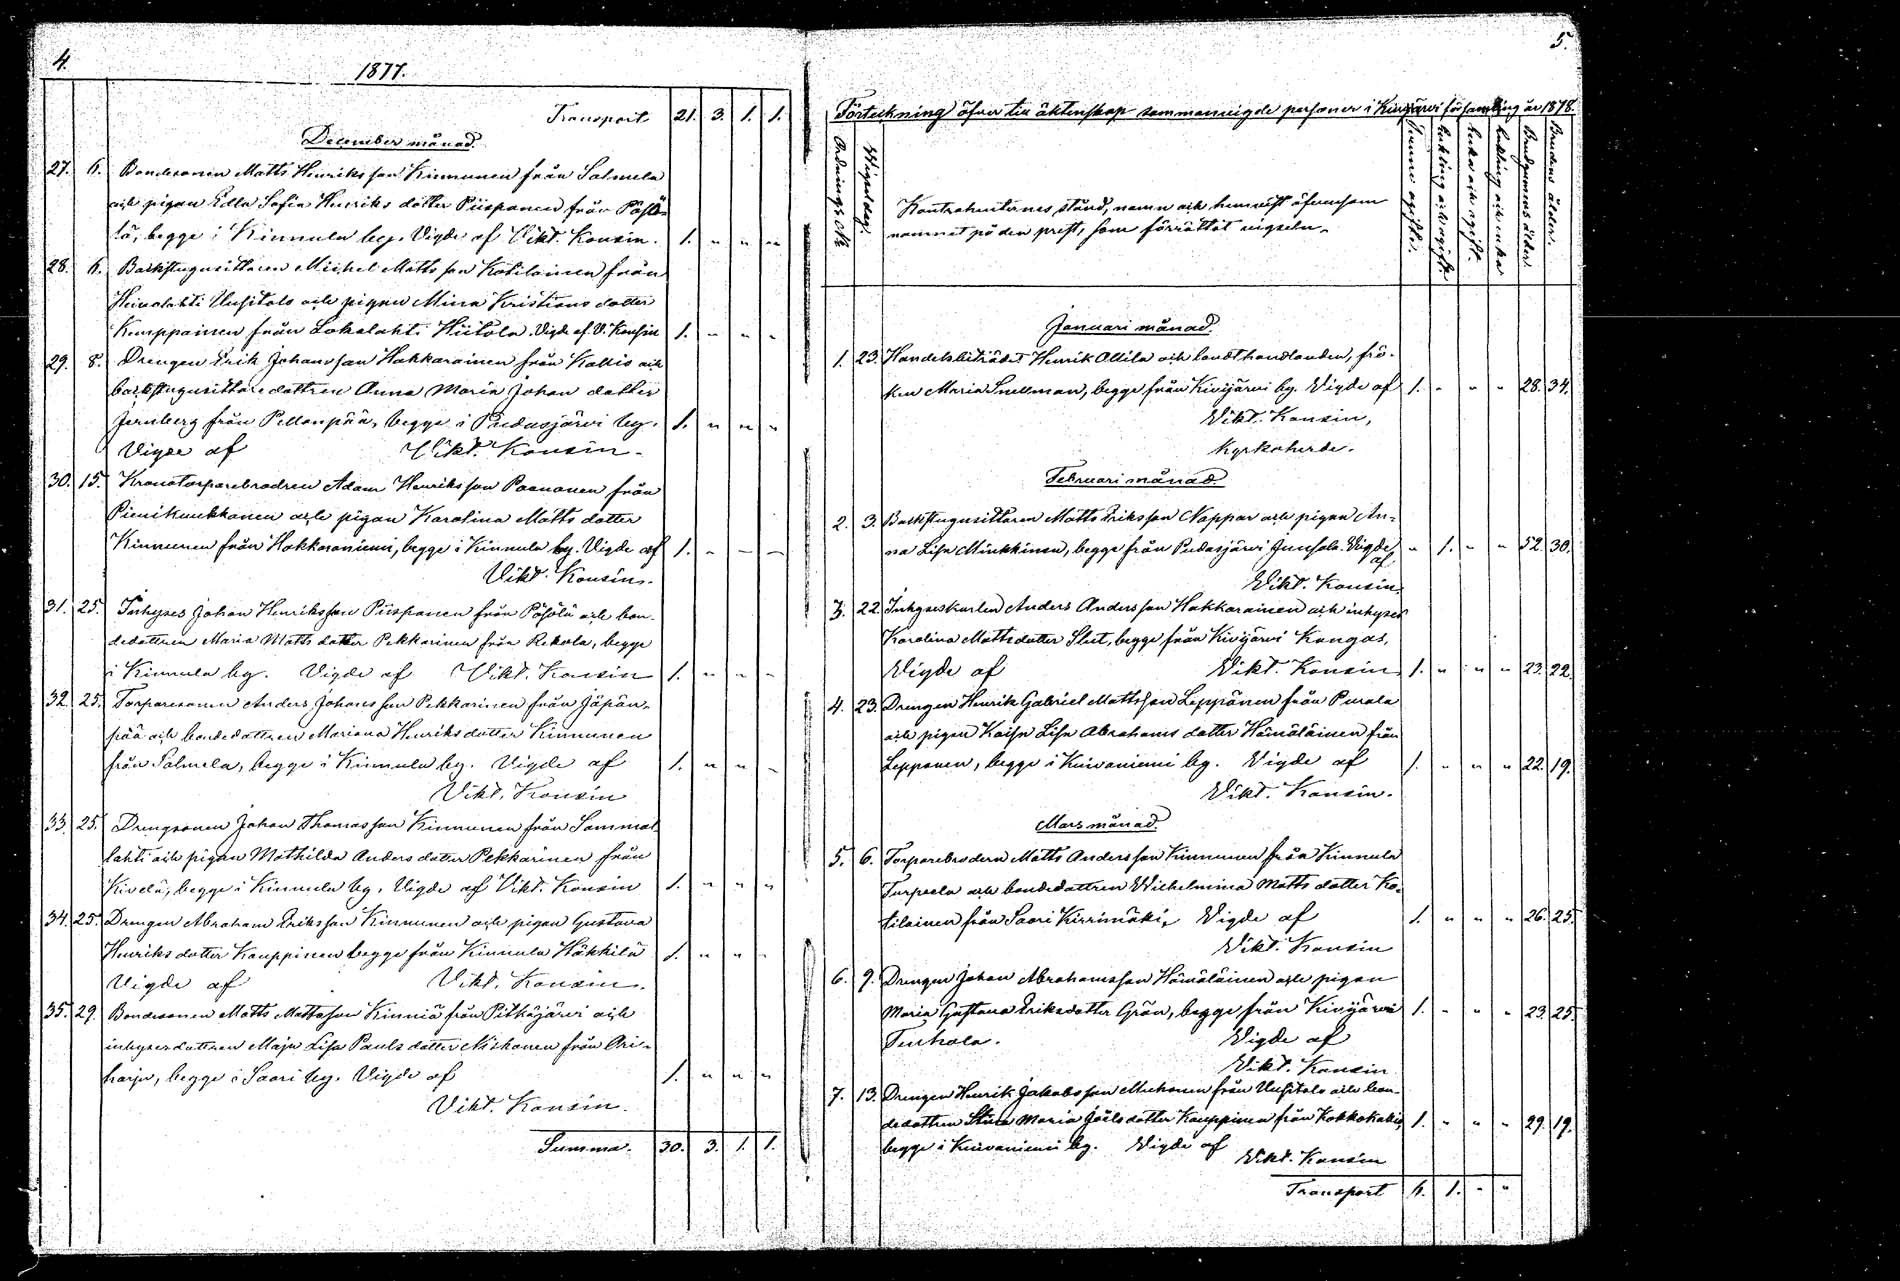 4.
1877.
Transport 21. 3. 1. 1.
December månad.
27. 6. Bondesonen Matts Henriksson Kinnunen från Salmela
och pigan Edla Sofia Henriks dotter Piispanen från Pöhö-
lä, begge i Kinnula by. Vigde af Vikt. Konsin. 1. " " "
28. 6. Backstugusittaren Michel Mattsson Kotilainen från
Heinolahti Uusitalo och pigan Mina Kristians dotter
Kemppainen från Lokalahti Hiitola. Vigde af V. Konsin 1. " " "
29. 8. Drengen Erik Johansson Hakkarainen från Kallio och
backstugusittaredottren Anna Maria Johan dotter
Jernberg från Pellonpää, begge i Pudasjärvi by. 1. " " "
Vigde af Vikt. Konsin.
30. 15. Kronotorparebrodren Adam Henriksson Paananen från
Pienikuukkanen och pigan Karolina Matts dotter
Kinnunen från Hakkaraniemi, begge i Kinnula by. Vigde af 1. " " "
Vikt. Konsin.
31. 25. Inhyses Johan Henriksson Piispanen från Pöhölä och bon-
dedottren Maria Matts dotter Pekkarinen från Rekola, begge
i Kinnula by. Vigde af Vikt. Konsin 1. " " "
32. 25. Torparesonen Anders Johansson Pekkarinen från Jäpän-
pää och bondedottren Mariana Henriksdotter Kinnunen
från Salmela, begge i Kinnula by. Vigde af 1. " " "
Vikt. Konsin
33. 25. Drengsonen Johan Thomasson Kinnunen från Sammal
lahti och pigan Mathilda Andersdotter Pekkarinen från
Kivelä, begge i Kinnula by. Vigde af Vikt. Konsin 1. " " "
34. 25. Drengen Abraham Eriksson Kinnunen och pigan Gustava
Henriks dotter Kauppinen begge från Kinnula Häkkilä 1. " " "
Vigde af Vikt. Konsin.
35. 29. Bondesonen Matts Mattsson Kinniä från Pitkäjärvi och
inhysesdottren Maja Lisa Pauls dotter Niskanen från Ori-
harju, begge i Saari by. Vigde af 1. " " "
Vikt. Konsin.
Summa. 30. 3. 1. 1.
5.
Förteckning öfver till äktenskap sammanvigde personer i Kivijärvi församling år 1878.
Ordnings №
Vigseldag.
Kontrahenternes stånd, namn och hemvist äfvensom
namnet på den prest, som förrättat vigseln.
Summa ogifte.
Enkling och ogift.
Enka och ogift.
Enkling och enka
Brudgummens ålder.
Brudens ålder.
Januari månad.
1. 23. Handelsbiträdet Henrik Ollila och landthandlanden, frö-
ken Maria Snellman, begge från Kivijärvi by. Vigde af 1. " " " 28. 34.
Vikt. Konsin,
Kyrkoherde.
Februari månad.
2. 3. Backstugusittaren Matts Eriksson Nappar och pigan An-
na Lisa Minkkinen, begge från Pudasjärvi Junsola. Vigde " 1. " " 52. 30.
af
Vikt. Konsin.
3. 22. Inhyseskarlen Anders Andersson Hakkarainen och inhyses
Karolina Mattsdotter Slut, begge från Kivijärvi Kangas.
Vigde af Vikt. Konsin 1. " " " 23. 22.
4. 23. Drengen Henrik Gabriel Mattsson Leppänen från Purala
och pigan Kaisa Lisa Abrahams dotter Hämäläinen från
Leppänen, begge i Kuivaniemi by. Vigde af 1. " " " 22. 19.
Vikt. Konsin.
Mars månad.
5. 6. Torparebrodern Matts Andersson Kinnunen från Kinnula
Turpeela och bondedottren Wilhelmina Matts dotter Ko-
tilainen från Saari Kirrimäki. Vigde af 1. " " " 26. 25.
Vikt. Konsin
6. 9. Drengen Johan Abrahamsson Hämäläinen och pigan
Maria Gustava Eriksdotter Grön, begge från Kivijärvi 1. " " " 23. 25.
Tenhola. Vigde af
Vikt. Konsin.
7. 13. Drengen Henrik Jakobsson Muhonen från Uusitalo och bon-
dedottren Stina Maria Joelsdotter Kauppinen från Kokkokallio, 1. " " " 29. 19.
begge i Kuivaniemi by. Vigde af
Vikt. Konsin
Transport 6. 1. " "